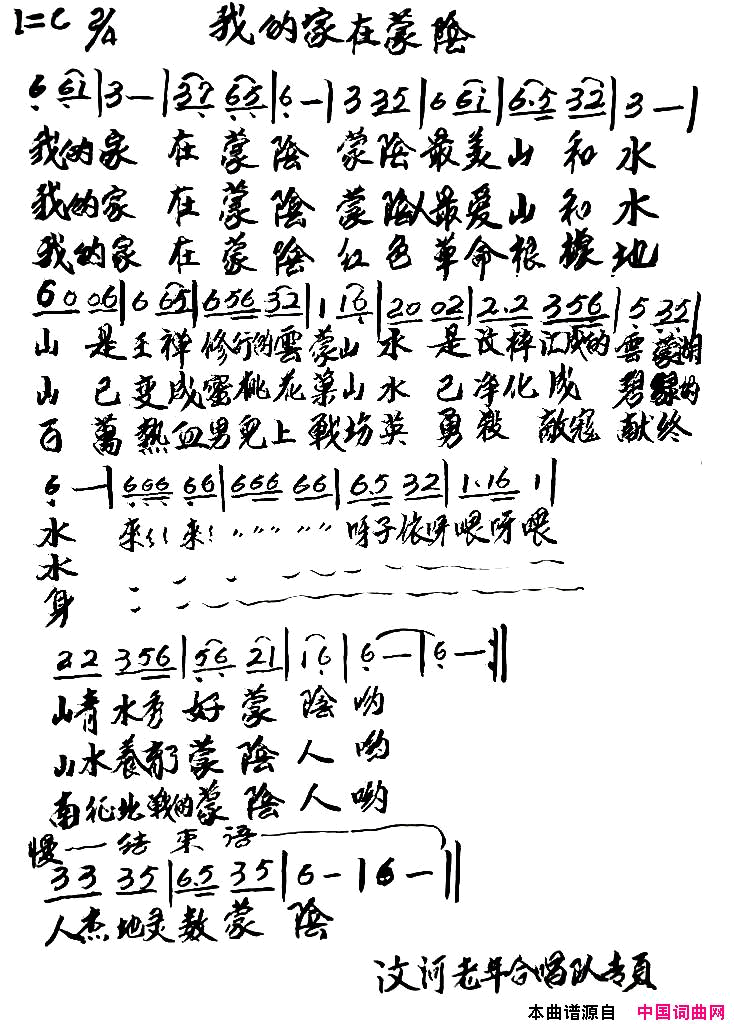 1=C 2/4 我的家在蒙陰
6 6i|3—|37 65|6—|3 35|6 6i|6·5 32|3—|
我的家 在蒙陰 蒙陰最美山和水
我的家 在蒙陰 蒙陰人最爱山和水
我的家 在蒙陰 红色革命根據地
60 06|6 65|656 32|1 16|20 02|2·2 356|5 35|
山 是王禅修行的雲蒙山 水 是汶梓汇成的雲蒙湖
山 已变成蜜桃花菓山 水 已净化成 碧綠的
百 萬熱血男兒上戰场英 勇殺 敵寇 献终
6—|666 66|666 66|6·5 32|1·16 1|
水 來 來 呀子依呀喂呀喂
水
身
22 356|56 21|16|6—|6—||
山青水秀好蒙陰哟
山水養育了蒙陰人喲
南征北戰的蒙陰人喲
慢——结束语
33 35|6·5 35|6—|6—||
人杰地灵数蒙陰
汶河老年合唱队专頁
本曲谱源自 中国词曲网